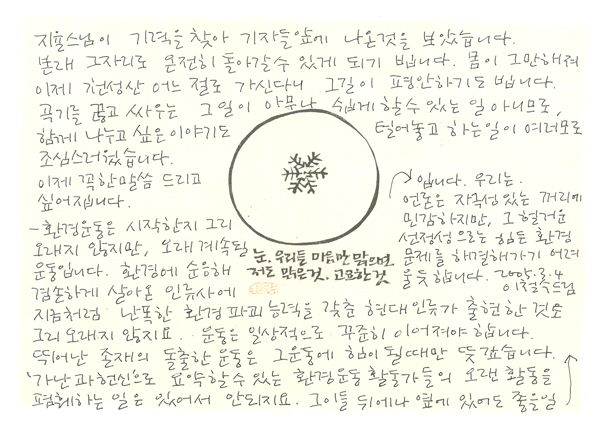 지율스님이 기력을 찾아 기자들앞에 나온것을 보았습니다.
본래 그자리로 온전히 돌아갈수 있게 되기 빕니다. 몸이 그만해져
이제 천성산 어느 절로 가신다니 그길이 평안하기도 빕니다.
곡기를 끊고 싸우는 그 일이 아무나 쉽게 할수 있는 일 아니므로,
함께 나누고 싶은 이야기도 털어놓고 하는일이 여러모로
조심스러웠습니다.
이제 꼭 한말씀 드리고
싶어집니다.
- 환경운동은 시작한지 그리
오래지 않지만, 오래 계속될
운동입니다. 환경에 순응해
겸손하게 살아온 인류사에
지금처럼 난폭한 환경파괴능력을 갖춘 현대인류가 출현한 것은
그리 오래지 않지요. 운동은 일상적으로 꾸준히 이어져야 합니다.
뛰어난 존재의 돌출한 운동은 그운동에 힘이 될때만 뜻깊습니다.
'가난과 헌신'으로 요약할수 있는 환경운동 활동가들의 오랜 활동을
폄훼하는 일은 있어서 안되지요. 그이들 뒤에나 옆에 있어도 좋을일
입니다. 우리는.
언론은 자극성 있는 꺼리에
민감하지만, 그 헐거운
선정성으로는 힘든 환경
문제를 해결해가기 어려
울 듯 합니다. 2005.3.4
이철수드림
눈, 우리들 마음만 맑으면
저도 맑은것. 고요한것